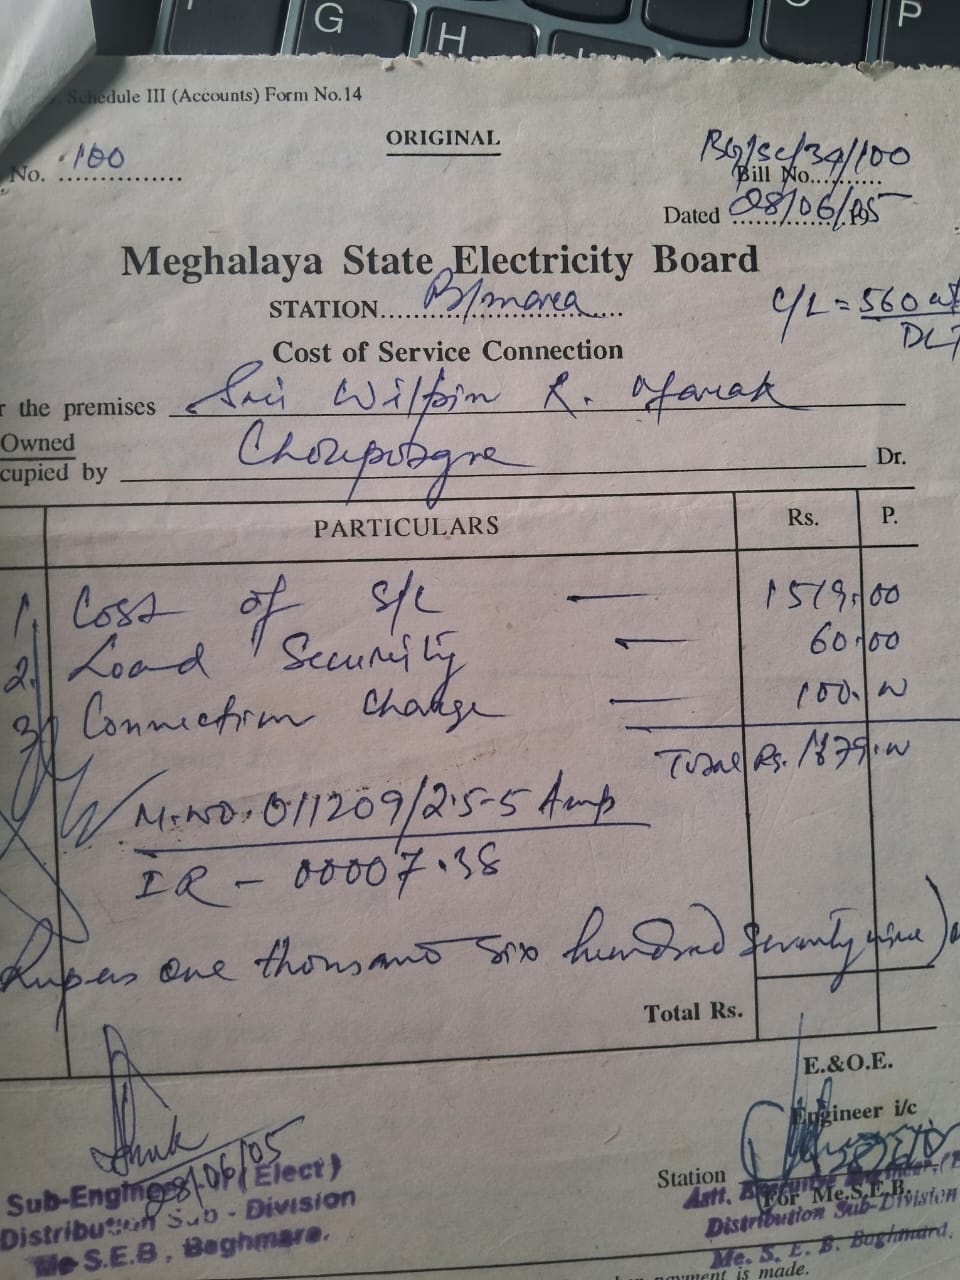 Schedule III (Accounts) Form No.14
ORIGINAL
No. 100
Bill No. BG/sc/34/100
Dated 08/06/05
Meghalaya State Electricity Board
STATION B/mara
C/L = 560
Cost of Service Connection
the premises Sri Wilpin R. Marak
Owned
cupied by
Dr.
PARTICULARS Rs. P.
1. Cost of S/C — 1519.00
2. Load Security — 60.00
3. Connection Charge — 100.
Total Rs. 1679.
M.NO. 011209/2.5-5 Amp
IR - 00007.38
Rupees one thousand six hundred seventy nine)
Total Rs.
E.&O.E.
Engineer i/c
08/06/05
Station
For Me.S.E.B.
Sub-Engineer (Elect)
Distribution Sub-Division
Me S.E.B, Baghmara.
Distribution Sub-Division
Me. S. E. B. Baghmara.
payment is made.